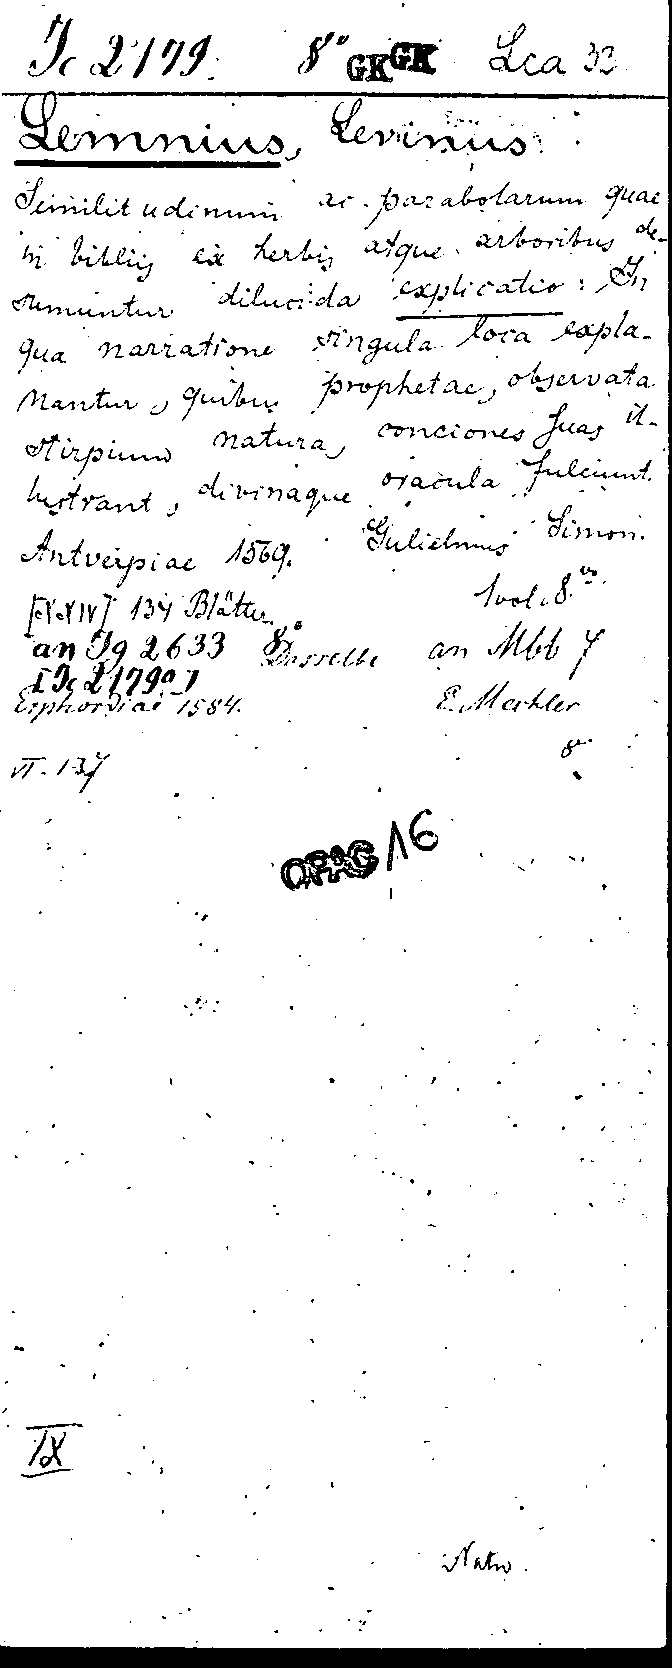 Ic 2179. 8° GK GK Lca 32
Lemnius, Levinus:
Similitudinum ac parabolarum quae
in bibliis ex herbis atque arboribus de-
sumuntur dilucida explicatio: In
qua narratione singula loca expla-
nantur, quibus prophetae, observata
stirpium natura, conciones suas il-
lustrant, divinaque oracula fulciunt.
Antverpiae 1569. Gulielmus Simon.
[XXIV] 134 Blätter 1 vol. 8vo
an Ig 2633 8° Dasselbe an Mbb 7
[Ic 2179a]
Erphordiae 1584. E. Mechler
VI. 137 8°
OPAC 16
IX
Natw.